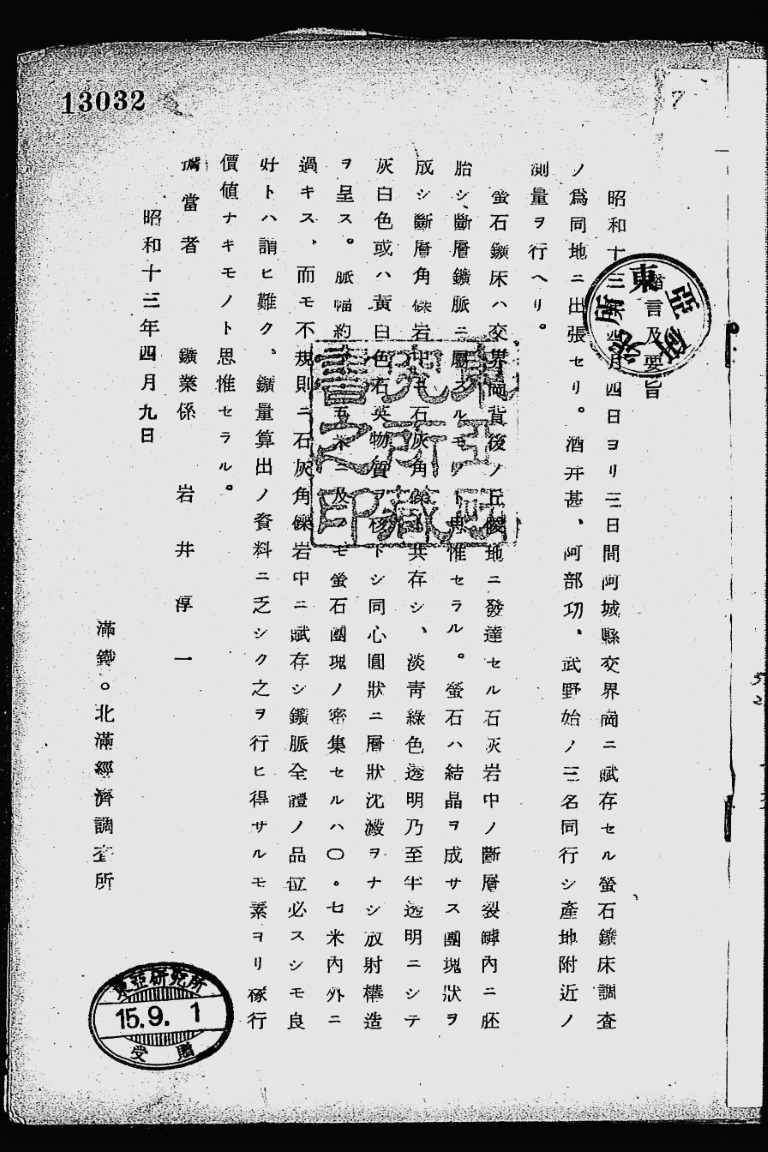 13032
緒言及要旨
昭和十三年四月四日ヨリ三日間阿城縣交界崗ニ賦存セル螢石鑛床調査
ノ爲同地ニ出張セリ。酒井甚、阿部功、武野始ノ三名同行シ產地附近ノ
測量ヲ行ヘリ。
螢石鑛床ハ交界崗背後ノ丘陵地ニ發達セル石灰岩中ノ斷層裂罅內ニ胚
胎シ、斷層鑛脈ニ屬スルモノト思惟セラル。螢石ハ結晶ヲ成サス團塊狀ヲ
成シ斷層角礫岩中石灰角礫ト共存シ、淡靑綠色透明乃至半透明ニシテ
灰白色或ハ黃白色石英物質ヲ核トシ同心圓狀ニ層狀沈澱ヲナシ放射構造
ヲ呈ス。脈幅約五米ニ及フモ螢石團塊ノ密集セルハ〇。七米內外ニ
過キス、而モ不規則ニ石灰角礫岩中ニ賦存シ鑛脈全體ノ品位必スシモ良
好トハ謂ヒ難ク、鑛量算出ノ資料ニ乏シク之ヲ行ヒ得サルモ素ヨリ稼行
價値ナキモノト思惟セラル。
擔當者 鑛業係 岩井淳一
昭和十三年四月九日
滿鐵。北滿經濟調査所
東亞研究所
東亞研究所藏書之印
東亞研究所
15.9.1
受